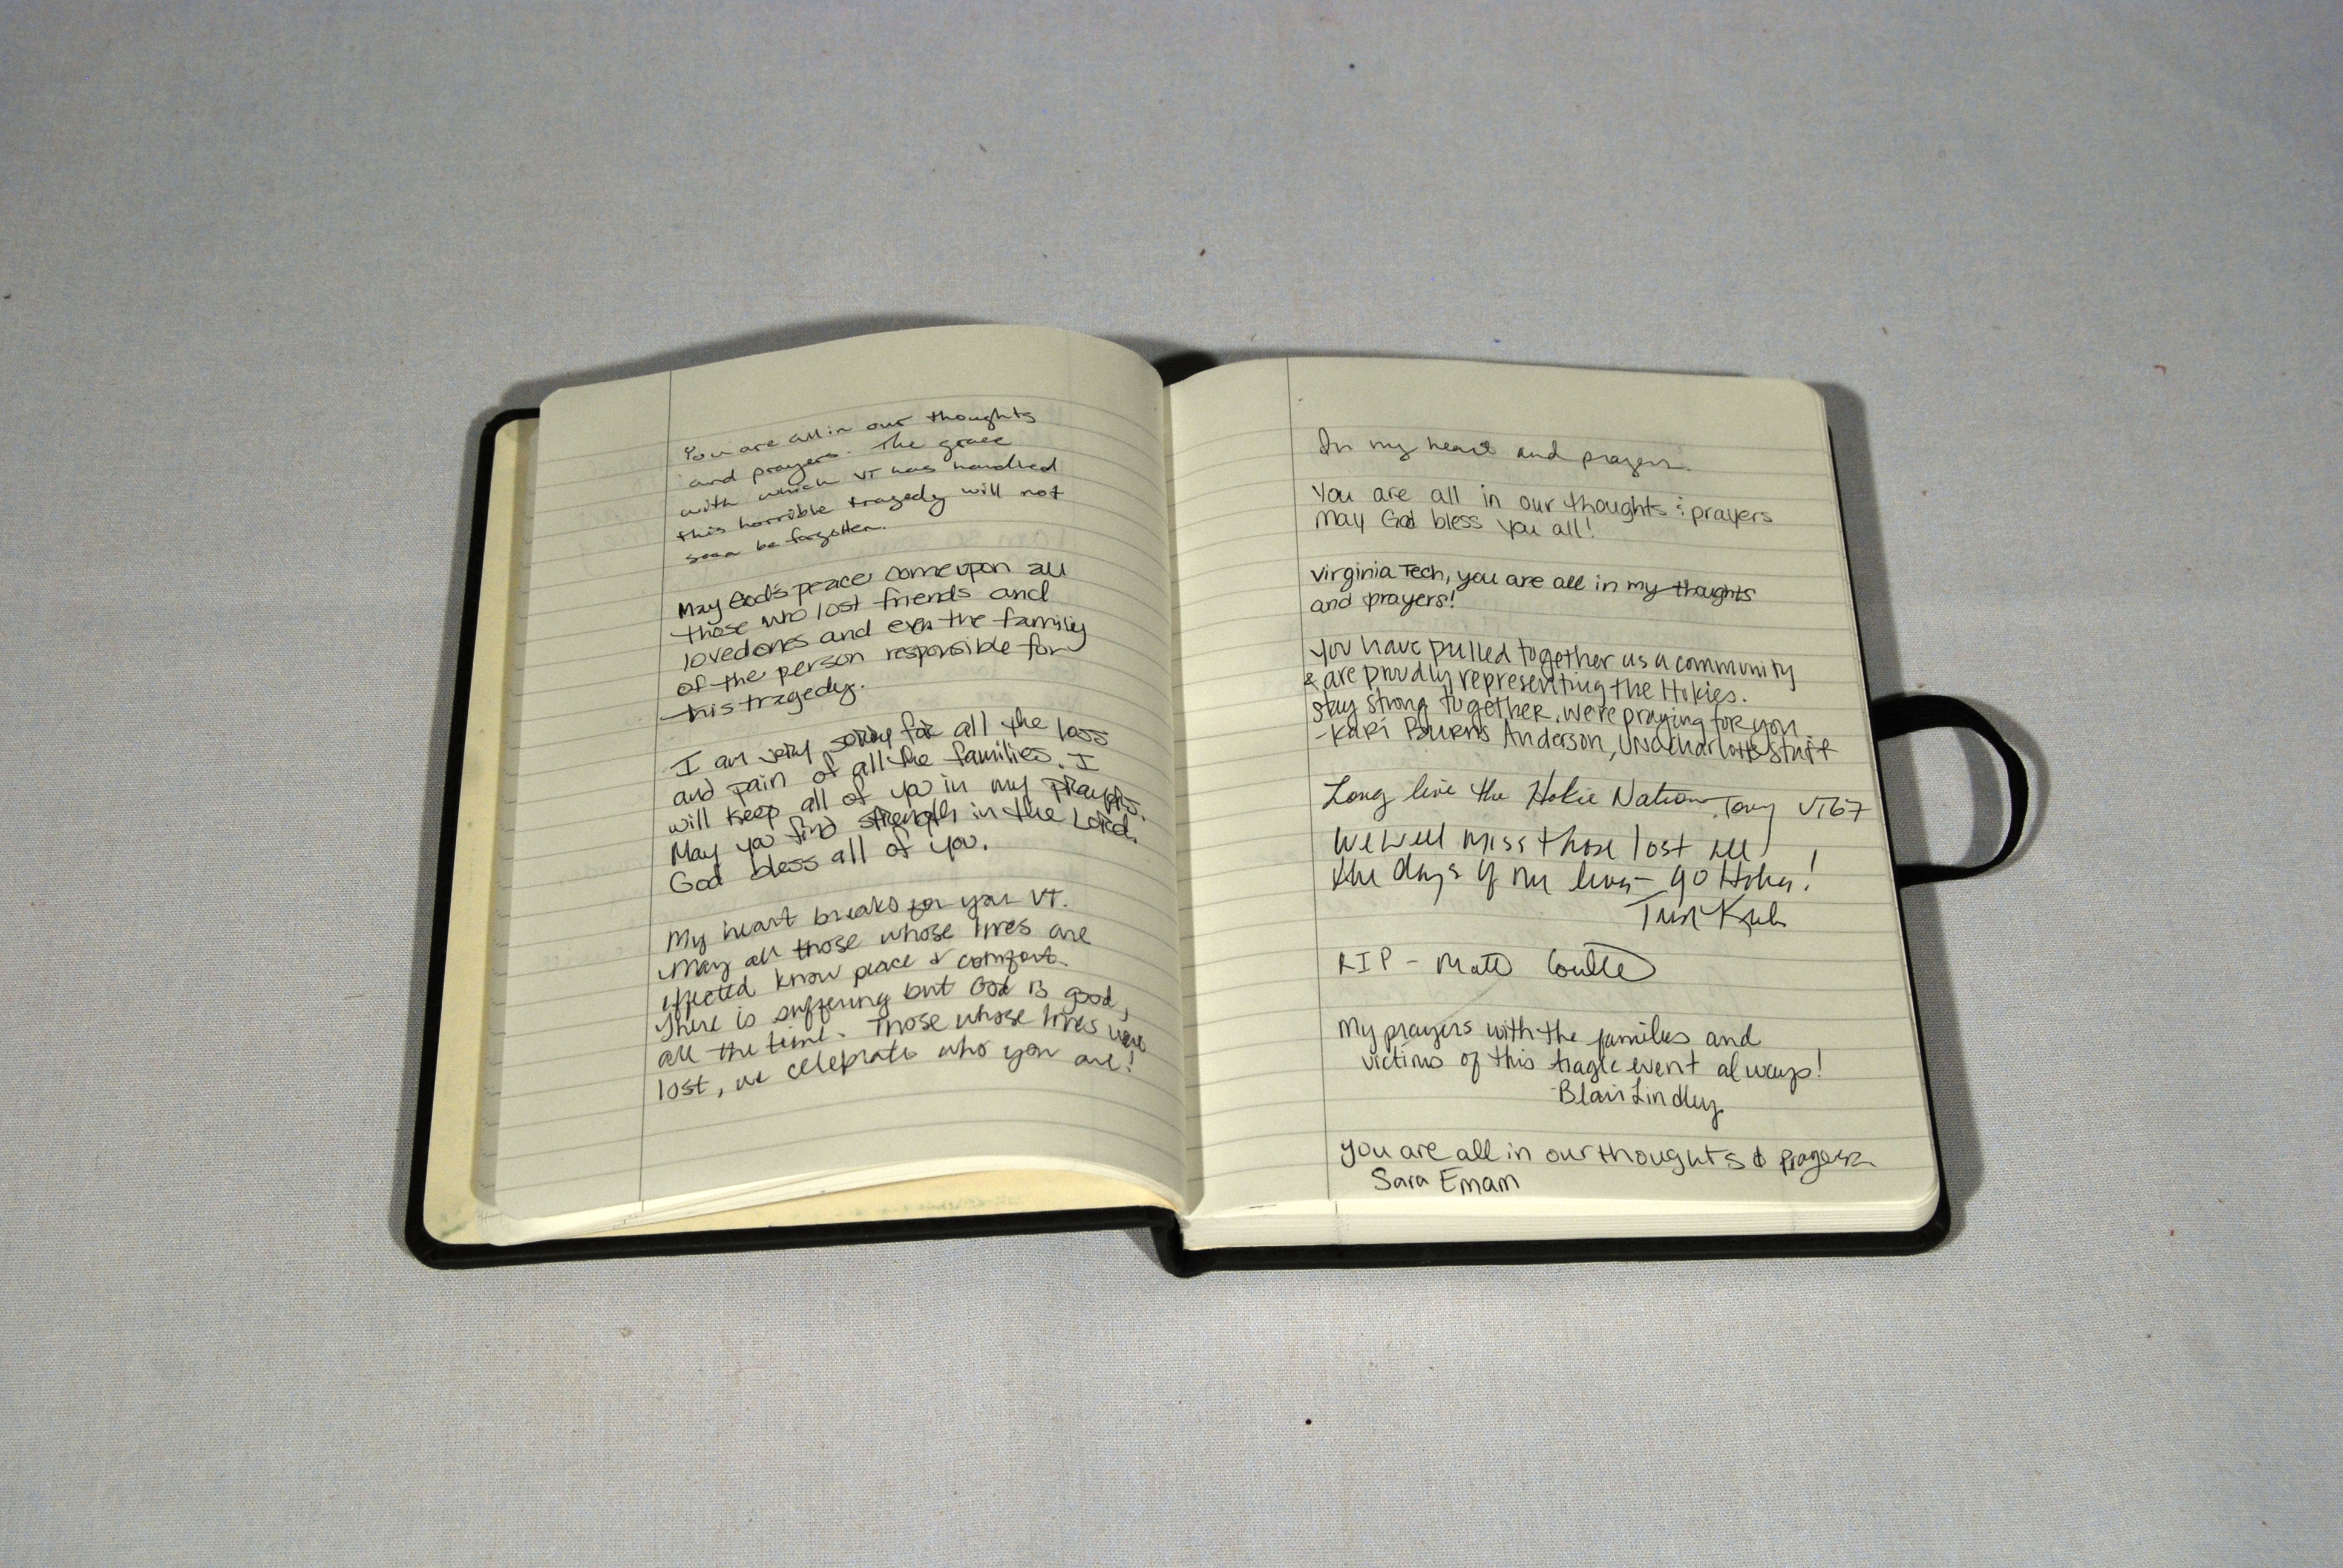 You are all in our thoughts
and prayers. The grace
with which VT has handled
this horrible tragedy will not
soon be forgotten.
May God's peace come upon all
those who lost friends and
loved ones and even the family
of the person responsible for
this tragedy.
I am very sorry for all the loss
and pain of all the families. I
will keep all of yo in my prayers.
May yo find strength in the Lord.
God bless all of you.
My heart breaks for you VT.
May all those whose lives are
effected know peace & comfort.
There is suffering but God is good,
all the time. Those whose lives were
lost, we celebrate who you are!
In my heart and prayers.
You are all in our thoughts & prayers
May God bless you all!
Virginia Tech, you are all in my thoughts
and prayers!
You have pulled together as a community
& are proudly representing the Hokies.
Stay strong together, we're praying for you
-Kari Burns Anderson, UNC Charlotte Staff
Long live the Hokie Nation. Tony VT67
We will miss those lost all
the days of our lives - go Hokies!
RIP - Matt
My prayers with the families and
victims of this tragic event always!
-Blair Lindley
You are all in our thoughts & prayers
Sara Emam